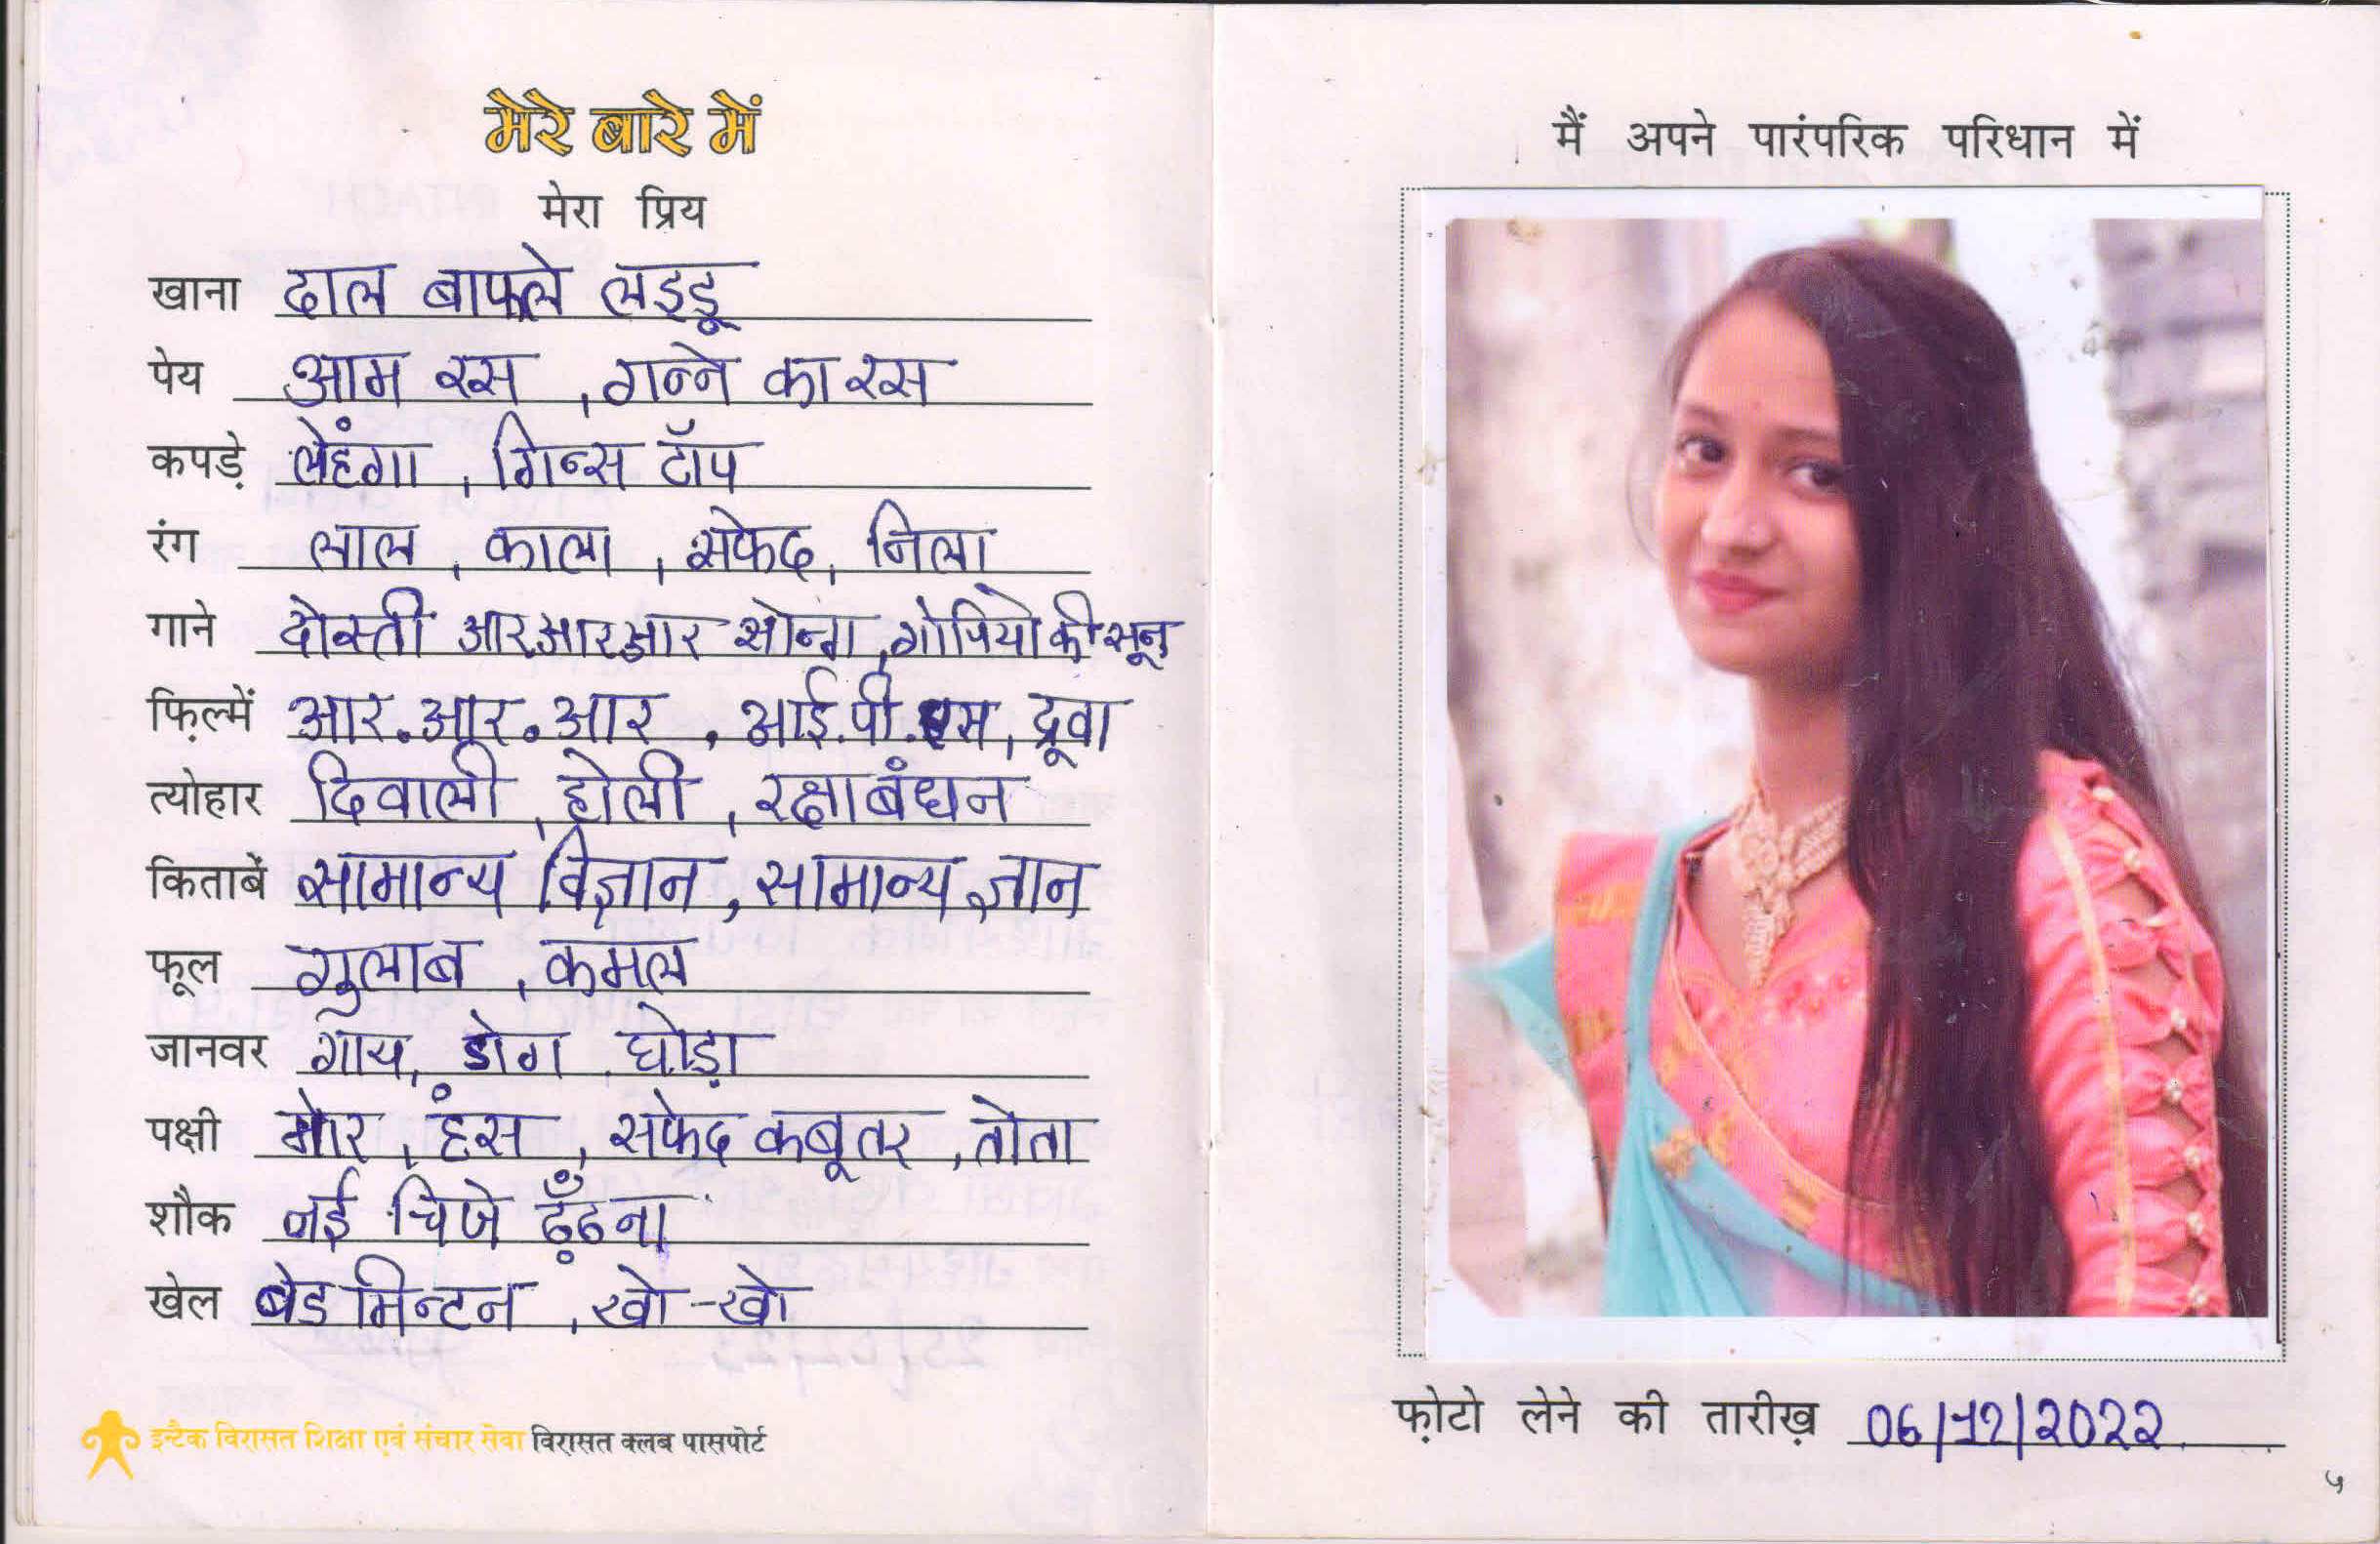 मेरे बारे में
मेरा प्रिय
खाना दाल बाफले लड्डू
पेय आम रस , गन्ने का रस
कपड़े लेहंगा , गिन्स टॉप
रंग लाल , काला , सफेद, निला
गाने दोस्ती आर.आर.आर सोन्ग , गोपियो की सून
फ़िल्में आर.आर.आर , आई.पी.एस, द्रूवा
त्योहार दिवाली , होली , रक्षाबंधन
किताबें सामान्य विज्ञान , सामान्य ज्ञान
फूल गुलाब , कमल
जानवर गाय, डोग घोड़ा
पक्षी मोर , हंस , सफेद कबूतर , तोता
शौक नई चिजे ढ़ूँढना
खेल बेडमिन्टन , खो-खो
इन्टैक विरासत शिक्षा एवं संचार सेवा विरासत क्लब पासपोर्ट
मैं अपने पारंपरिक परिधान में
फ़ोटो लेने की तारीख़ 06/12/2022
५